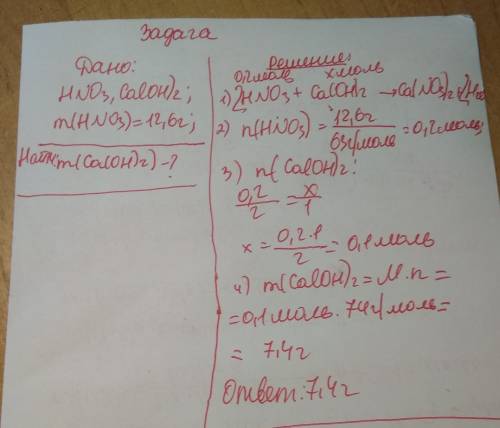 Задача
Дано:
HNO3, Ca(OH)2;
m(HNO3)=12,6г;
Найти: m(Ca(OH)2)-?
Решение:
0,2моль х моль
1) 2HNO3 + Ca(OH)2 → Ca(NO3)2 + 2H2O
2) n(HNO3) = 12,6г / 63г/моль = 0,2моль;
3) n(Ca(OH)2:
0,2/2 = x/1
x = 0,2·1/2 = 0,1моль
4) m(Ca(OH)2 = M·n =
=0,1моль·74г/моль=
= 7,4г
Ответ: 7,4г